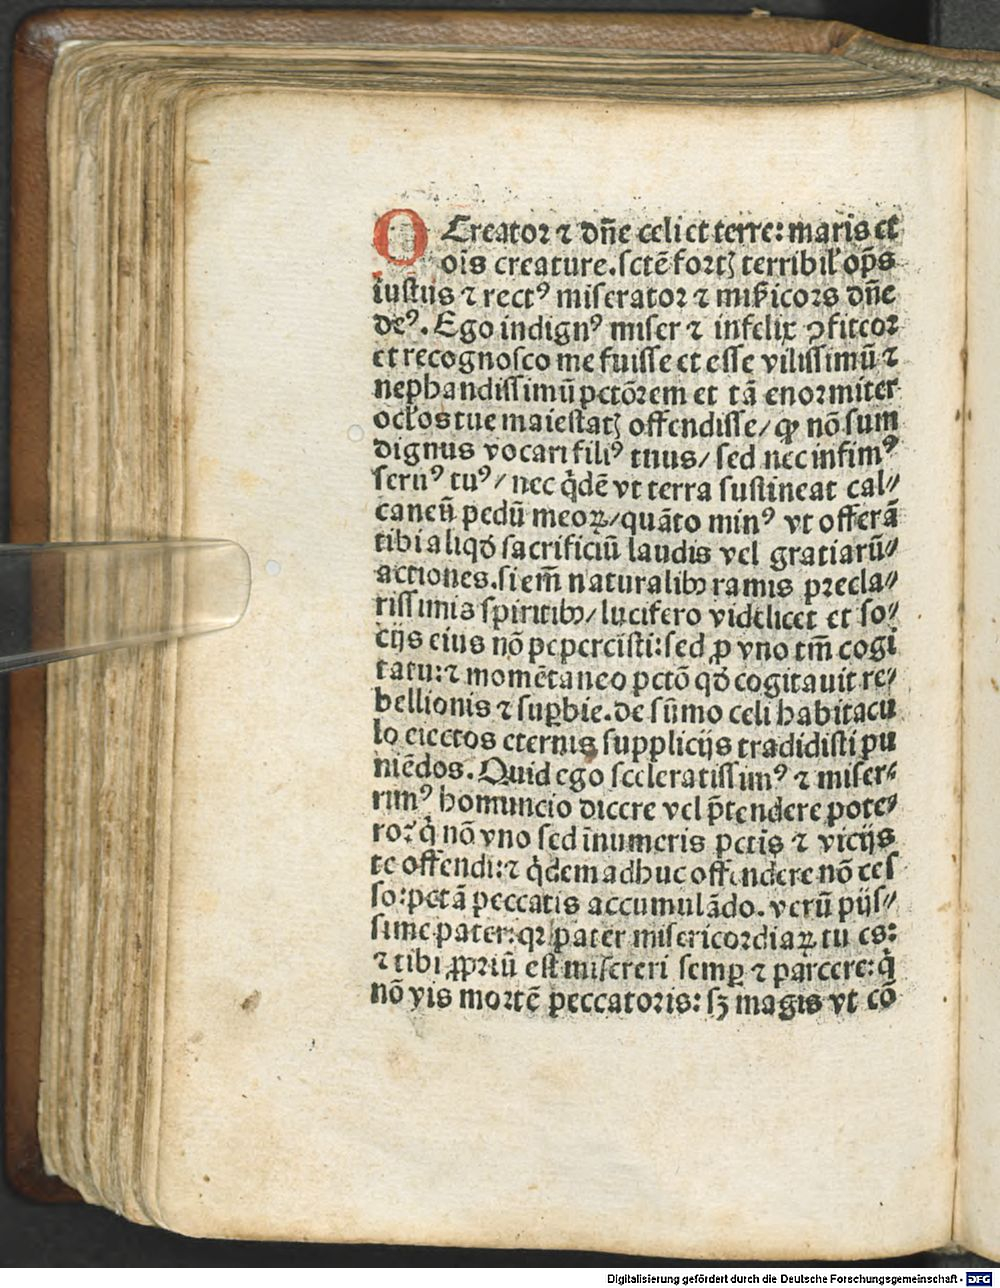 O Creator ⁊ dñe celi et terre: maris et
oı̄s creature. sctē fortꝭ terribiłop̄s
iustus ⁊ rectꝰ miserator ⁊ mīꝑicors dñe
deꝰ. Ego indignꝰ miser ⁊ infelix ꝯfiteor
et recognosco me fuisse et esse vilissimū ⁊
nephandissimū pctōrem et tā enormiter
ocłos tue maiestatꝭ offendisse/ ꝙ nō sum
dignus vocari filiꝰ tuus/ sed nec infimꝰ
seruꝰ tuꝰ/ nec q̇dē vt terra sustineat cal//
caneū pedū meoꝝ/ quāto minꝰ vt offerā
tibi aliqđ sacrificiū laudis vel gratiarū//
actiones. si em̄ naturalibꝫ ramis precla//
rissimis spiritibꝫ/ lucifero videlicet et so//
cijs eius nō pepercisti: sed ꝓ vno tm̄ cogi
tatu: ⁊ momētaneo pctō qđ cogitauit re//
bellionis ⁊ suꝑbie. de sūmo celi habitacu
lo eiectos eternis supplicijs tradidisti pu
niēdos. Quid ego sceleratissimꝰ ⁊ miser//
rimꝰ homuncio dicere vel p̄tendere pote//
ro? q̇ nō vno sed īnumeris pctis ⁊ vicijs
te offendi: ⁊ q̇dem adhuc offendere nō ces
so: pctā peccatis accumulādo. verū pijs//
sime pater: qꝛ pater misericordiaꝝ tu es:
⁊ tibi ꝓpriū est misereri semꝑ ⁊ parcere: q̇
nō vis mortē peccatoris: sꝫ magis vt cō
Digitalisierung gefördert durch die Deutsche Forschungsgemeinschaft - DFG